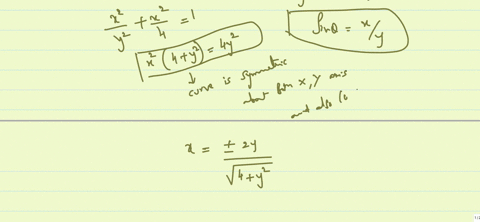 x²/y² + x²/4 = 1
Sinθ = x/y
x² (4+y²) = 4y²
↓
curve is symmetric
about both x, y axis
and also (0
x = ± 2y / √(4+y²)